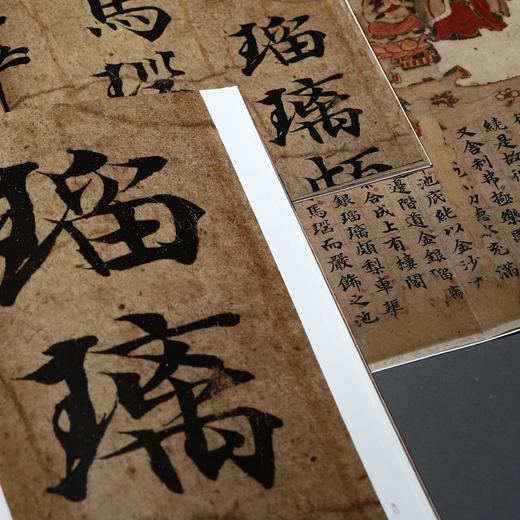 繞是故
又舍利弗極樂國
充滿
池底純以金沙
邊階道金銀瑠璃
合成上有樓閣
銀瑠璃頗梨車渠
馬瑙而嚴飾之池
瑠璃頗
馬瑙
瑠璃